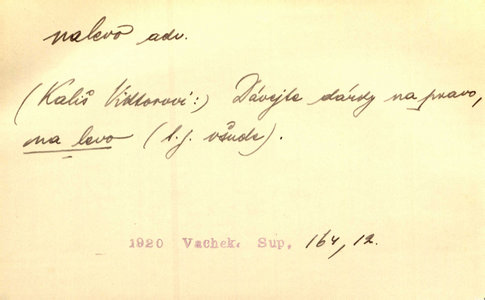 nalevo adv.
(Kališ Viktorovi:) Dávejte dárky na pravo,
na levo (t.j. všude).
1920 Vachek. Sup. 164, 12.